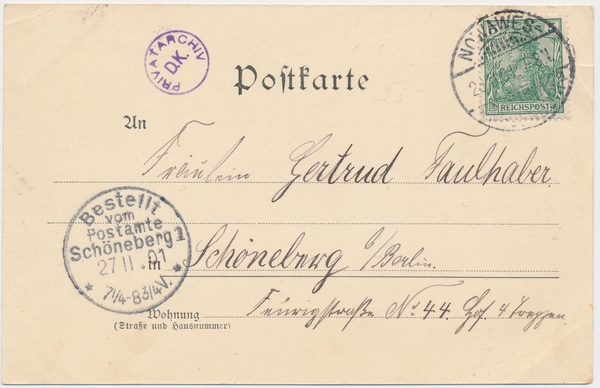 PRIVATARCHIV
D.K.
Postkarte
NOWAWES
REICHSPOST
An
Fräulein Gertrud Faulhaber
Bestellt
vom
Postamte
Schöneberg 1
27 11 . 01
* 7¼-8¾V. *
in
Schöneberg b/Berlin.
Feurigstraße No 44. Hof. 4 Treppen
Wohnung
(Straße und Hausnummer)